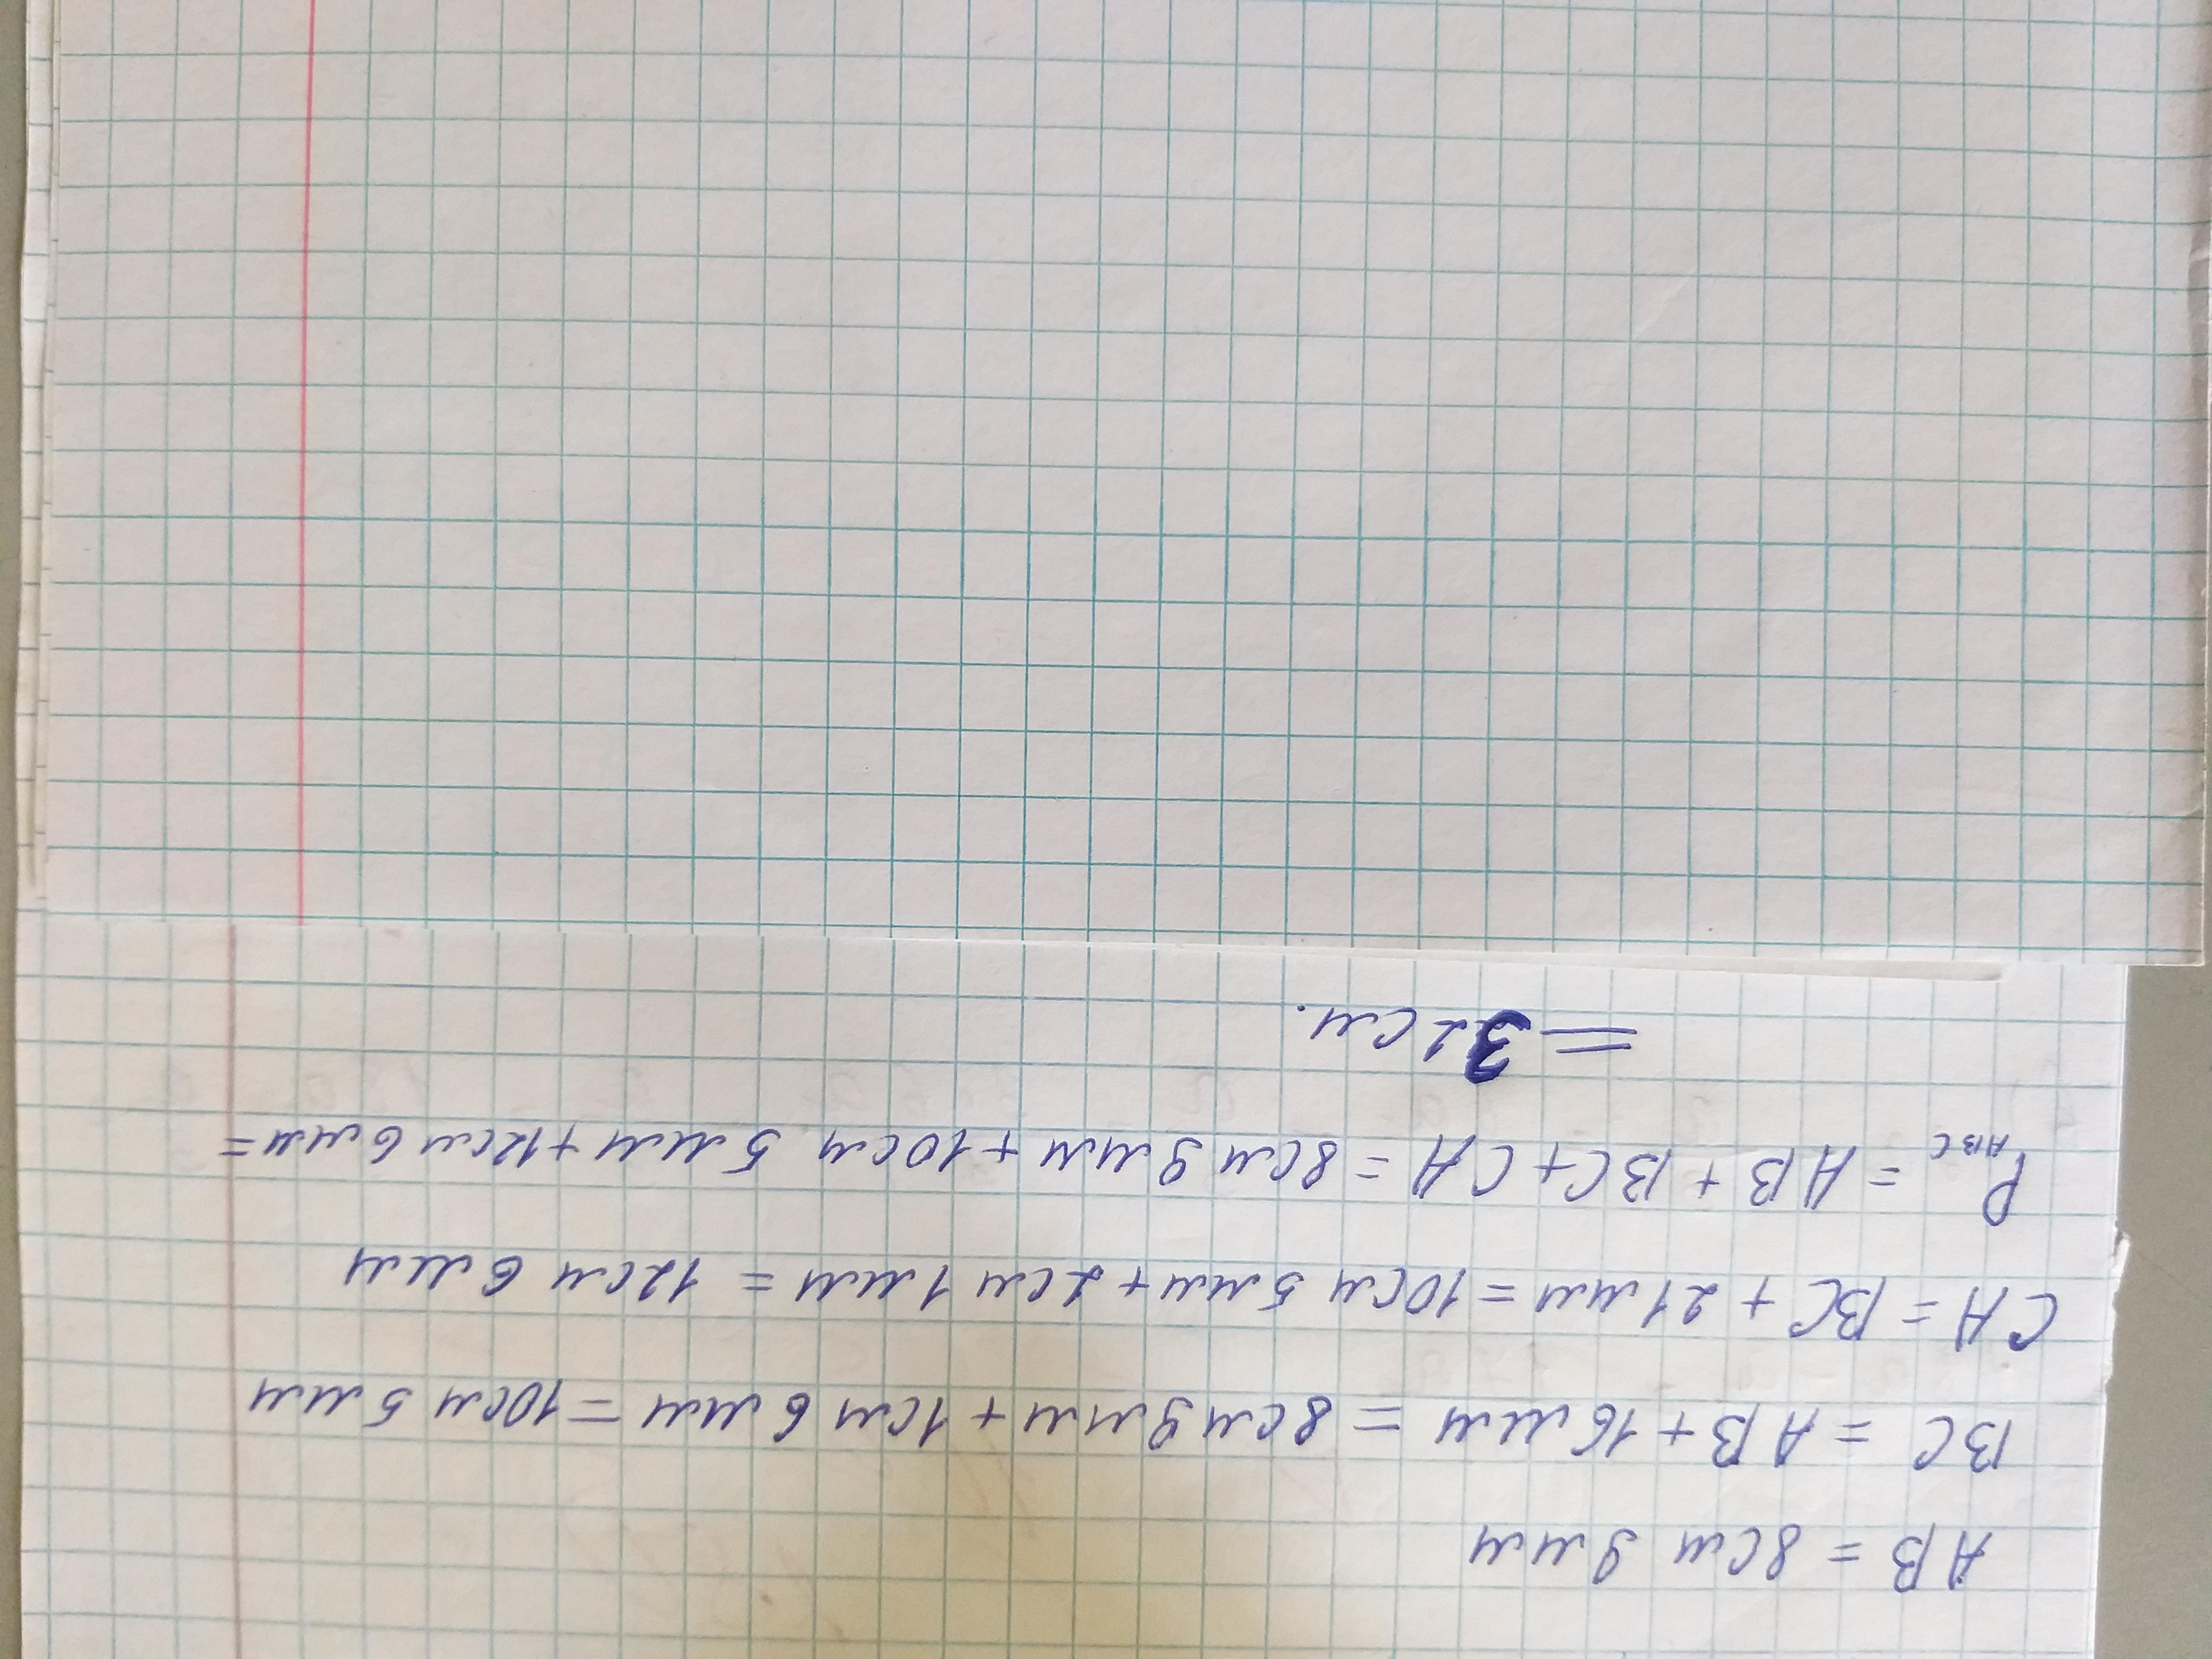 AB = 8см 9мм
BC = AB + 16мм = 8см 9мм + 1см 6мм = 10см 5мм
CA = BC + 21мм = 10см 5мм + 2см 1мм = 12см 6мм
P ABC = AB + BC + CA = 8см 9мм + 10см 5мм + 12см 6мм =
= 32см.